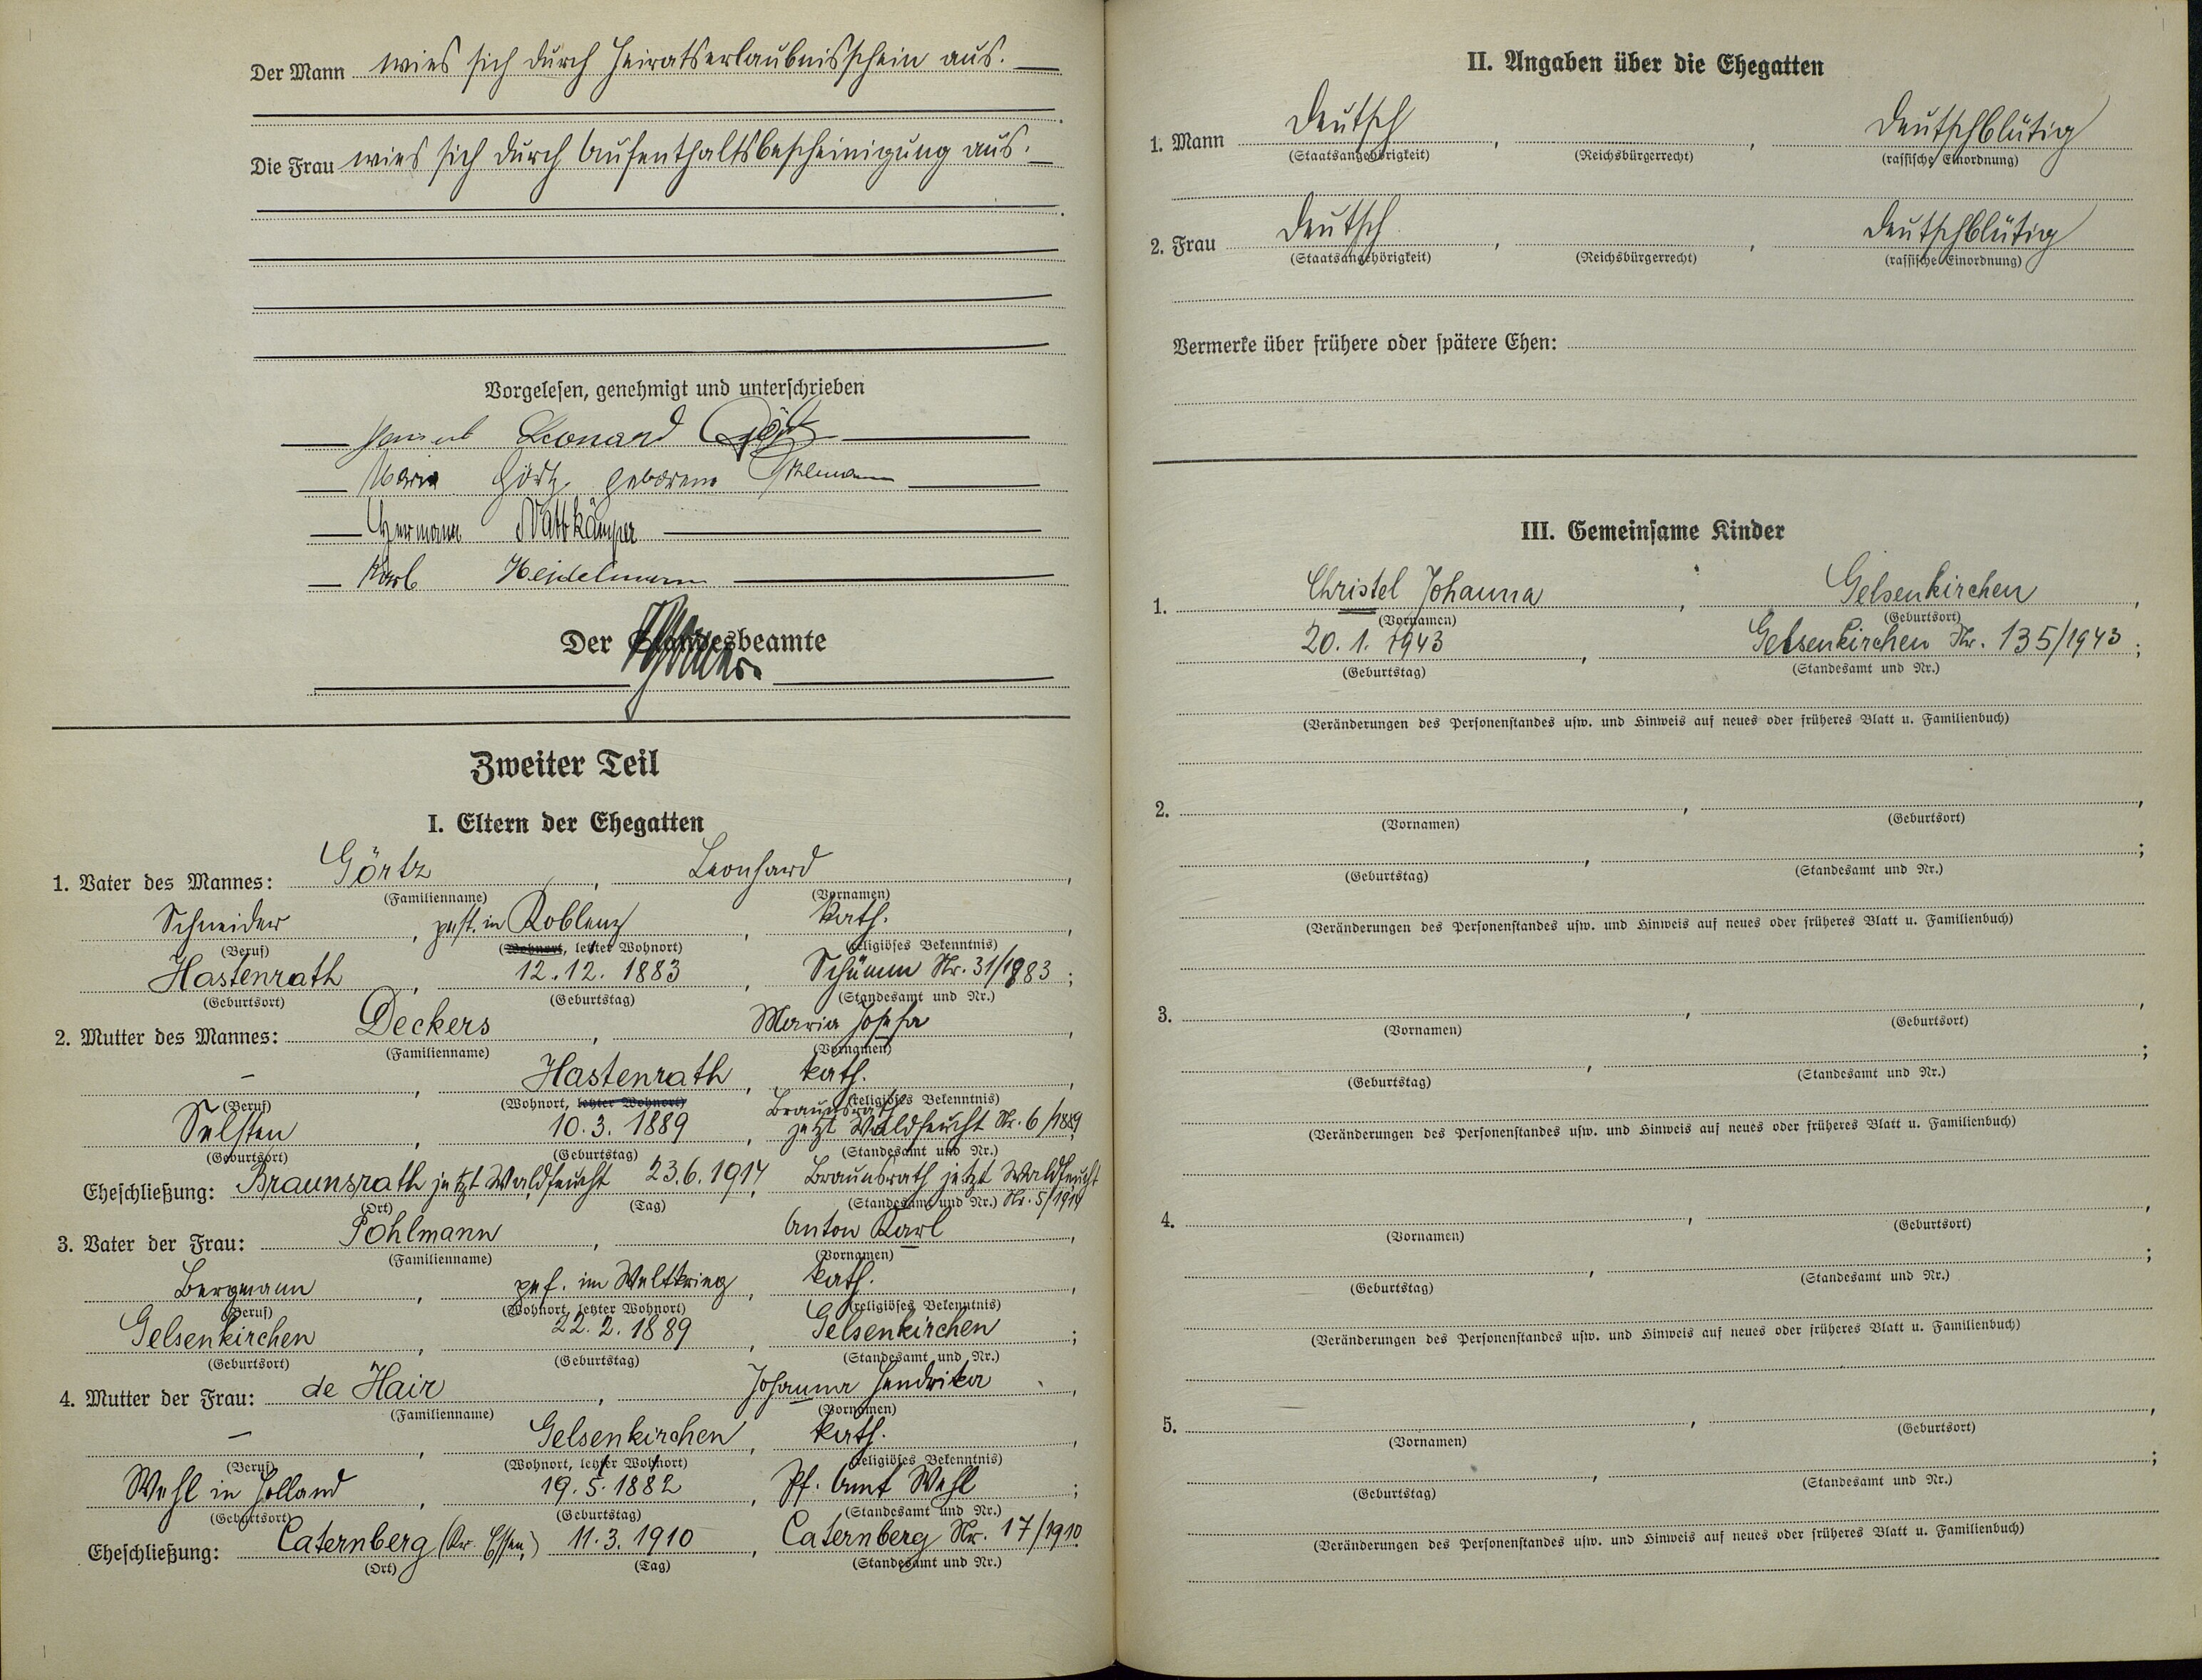 Der Mann wies sich durch Heiratserlaubnisschein aus.
Die Frau wies sich durch Aufenthaltsbescheinigung aus.
Vorgelesen, genehmigt und unterschrieben
Leonard Görtz
Maria Görtz geborene Pohlmann
Hermann Nattkämper
Karl Heidelmann
Der Standesbeamte
Zweiter Teil
I. Eltern der Ehegatten
1. Vater des Mannes: Görtz, Leonhard,
(Familienname) (Vornamen)
Schneider, gest. in Koblenz, kath.,
(Beruf) (Wohnort, letzter Wohnort) (religiöses Bekenntnis)
Hastenrath, 12.12.1883, Schümm Nr. 31/1883;
(Geburtsort) (Geburtstag) (Standesamt und Nr.)
2. Mutter des Mannes: Deckers, Maria Josefa,
(Familienname) (Vornamen)
–, Hastenrath, kath.,
(Beruf) (Wohnort, letzter Wohnort) (religiöses Bekenntnis)
Selsten, 10.3.1889, Braunsrath jetzt Waldfeucht Nr. 6/1889
(Geburtsort) (Geburtstag) (Standesamt und Nr.)
Eheschließung: Braunsrath jetzt Waldfeucht 23.6.1914, Braunsrath jetzt Waldfeucht Nr. 5/1914
(Ort) (Tag) (Standesamt und Nr.)
3. Vater der Frau: Pohlmann, Anton Karl,
(Familienname) (Vornamen)
Bergmann, gef. im Weltkrieg, kath.,
(Beruf) (Wohnort, letzter Wohnort) (religiöses Bekenntnis)
Gelsenkirchen, 22.2.1889, Gelsenkirchen;
(Geburtsort) (Geburtstag) (Standesamt und Nr.)
4. Mutter der Frau: de Hair, Johanna Hendrika,
(Familienname) (Vornamen)
–, Gelsenkirchen, kath.,
(Beruf) (Wohnort, letzter Wohnort) (religiöses Bekenntnis)
Wehl in Holland, 19.5.1882, Pf. Amt Wehl;
(Geburtsort) (Geburtstag) (Standesamt und Nr.)
Eheschließung: Caternberg (Kr. Essen) 11.3.1910, Caternberg Nr. 17/1910
(Ort) (Tag) (Standesamt und Nr.)
II. Angaben über die Ehegatten
1. Mann Deutsch, , deutschblütig
(Staatsangehörigkeit) (Reichsbürgerrecht) (rassische Einordnung)
2. Frau Deutsch, , deutschblütig
(Staatsangehörigkeit) (Reichsbürgerrecht) (rassische Einordnung)
Vermerke über frühere oder spätere Ehen:
III. Gemeinsame Kinder
1. Christel Johanna, Gelsenkirchen,
(Vornamen) (Geburtsort)
20.1.1943, Gelsenkirchen Nr. 135/1943;
(Geburtstag) (Standesamt und Nr.)
(Veränderungen des Personenstandes usw. und Hinweis auf neues oder früheres Blatt u. Familienbuch)
2. , ,
(Vornamen) (Geburtsort)
, ;
(Geburtstag) (Standesamt und Nr.)
(Veränderungen des Personenstandes usw. und Hinweis auf neues oder früheres Blatt u. Familienbuch)
3. , ,
(Vornamen) (Geburtsort)
, ;
(Geburtstag) (Standesamt und Nr.)
(Veränderungen des Personenstandes usw. und Hinweis auf neues oder früheres Blatt u. Familienbuch)
4. , ,
(Vornamen) (Geburtsort)
, ;
(Geburtstag) (Standesamt und Nr.)
(Veränderungen des Personenstandes usw. und Hinweis auf neues oder früheres Blatt u. Familienbuch)
5. , ,
(Vornamen) (Geburtsort)
, ;
(Geburtstag) (Standesamt und Nr.)
(Veränderungen des Personenstandes usw. und Hinweis auf neues oder früheres Blatt u. Familienbuch)